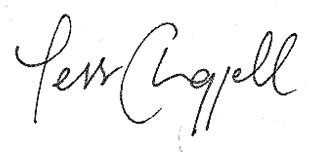 Tess Chappell